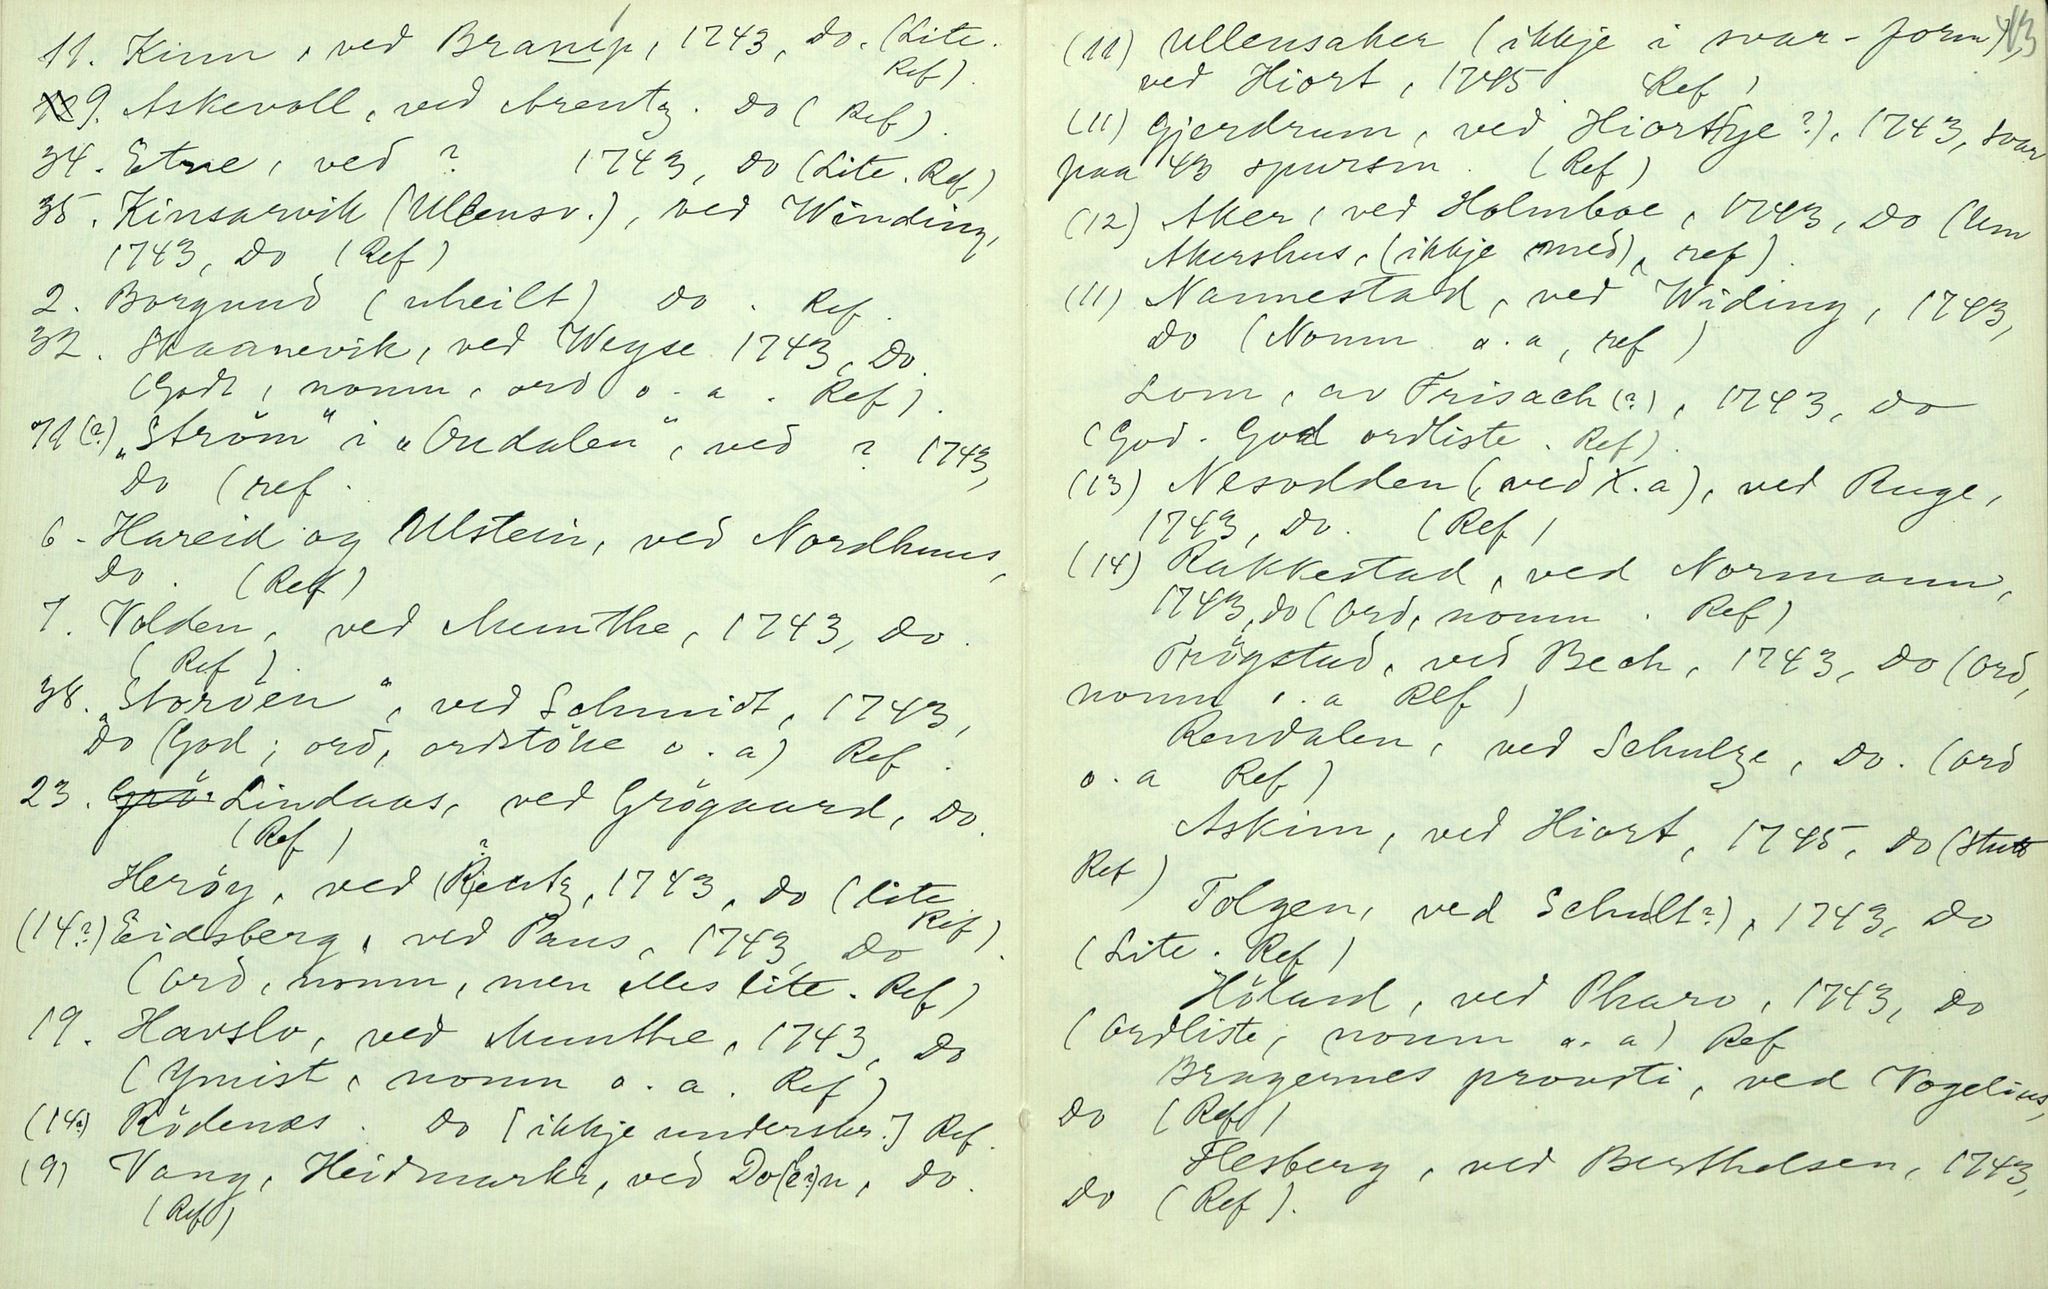 11. Kinn, ved Branip, 1743, Do. (Lite.
Ref).
9. Askevoll, ved Arentz. Do (Ref).
34. Etne, ved ? 1743, Do (Lite. Ref)
35. Kinsarvik (Ullensv.), ved Winding,
1743, Do (Ref)
2. Borgund (uheilt) Do. Ref.
32. Skaanevik, ved Weyse 1743, Do.
(Godt, nomn, ord o. a. Ref).
71(?) „Ström“ i „Oudalen“, ved ? 1743,
Do (ref.
6. Hareid og Ulstein, ved Nordhuus,
Do. (Ref)
7. Volden, ved Munthe, 1743, Do.
(Ref).
38. „Storöen“, ved Schmidt, 1743,
Do (God; ord, ordstöke o. a) Ref.
23. Grö Lindaas, ved Grögaard, Do.
(Ref)
Heröy, ved (?)Rentz, 1743, Do (lite
Ref).
(14?) Eidsberg, ved Paus, 1743, Do
(ord, nomn, men elles lite. Ref)
19. Havslo, ved Munthe, 1743, Do
(Ymist, nomn o. a. Ref)
(14?) Rödenes. Do [ikkje underskr.] Ref.
(9) Vang, Heidmark, ved Do(e?)n, Do.
(Ref)
13
(11) Ullensaker (ikkje i svar-form),
ved Hiort, 1745 Ref)
(11) Gjerdrum, ved Hiort(ye?), 1743, svar
paa 43 spursm. (Ref)
(12) Aker, ved Holmboe, 1743, Do (Um
Akershus, (ikkje med), ref).
(11) Nannestad, ved Widing, 1743,
Do (Nomn o. a, ref)
Lom, av Frisach(?), 1743, Do
(God. God ordliste. Ref).
(13) Nesodden (, ved X. a), ved Ruge,
1743, Do. (Ref)
(14) Rakkestad, ved Normann,
1743, Do (Ord, nomn. Ref)
Trögstad, ved Bech, 1743, Do (ord,
nomn o. a Ref)
Rendalen, ved Schulze, Do. (ord
o. a Ref)
Askim, ved Hiort, 1745, Do (Stutt
Ref)
Tolgen, ved Schu(lt?), 1743, Do
(Lite. Ref)
Höland, ved Pharo, 1743, Do
(Ordliste, nomn o. a) Ref
Bragernes provsti, ved Vogelius,
Do (Ref)
Flesberg, ved Berthelsen, 1743,
Do (Ref).